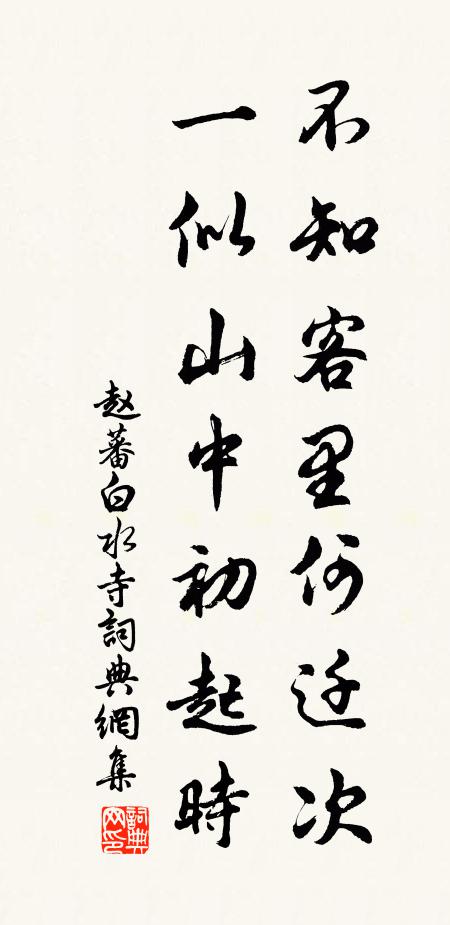 不知客里何迁次
一似山中初起時
赵蕃白水寺詞典網集
詞典网印